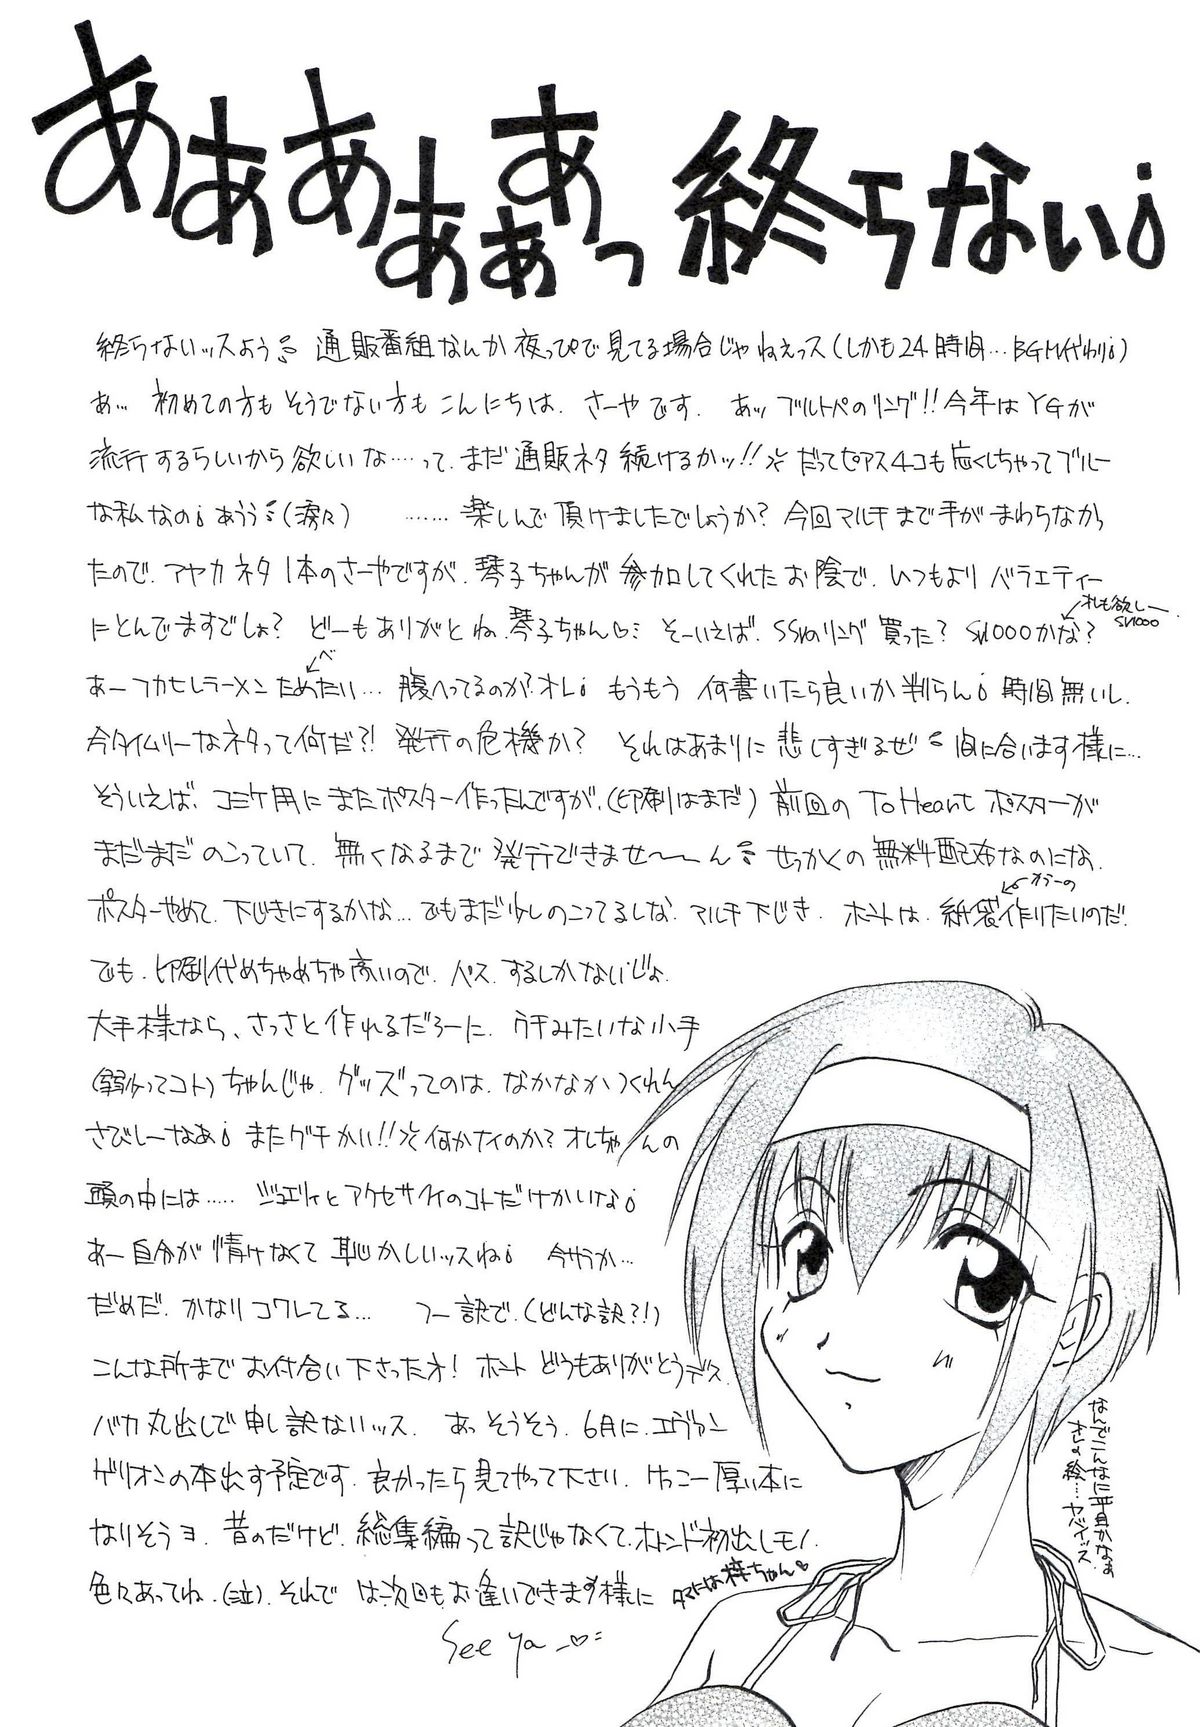 あああああぁっ 終らないi
終らないッスよう 通販番組なんか夜っぴで見てる場合じゃねえっス(しかも24時間…BGM代わりi)
あ… 初めての方もそうでない方もこんにちは、さーやです。 あッ ブルトペのリング!!今年はYGが
流行するらしいから欲しいな……って、まだ通販ネタ続けるかッ!! だってピアス4コも亡くしちゃってブルー
な私なのi あうう(涙々) ……楽しんで頂けましたでしょうか?今回マルチまで手がまわらなかっ
たので、アヤカネタ1本のさーやですが、琴子ちゃんが参加してくれたお陰で、いつもよりバラエティー
にとんでますでしょ? どーもありがとね、琴子ちゃん♡ そーいえば、SSVのリング買った? SV1000かな?
オレも欲しー SV1000
あーフカヒレラーメンためたい… 腹へってるのか?オレi もうもう何書いたら良いか判らんi 時間無いし、
べ
今タイムリーなネタって何だ?! 発行の危機か? それはあまりに悲しすぎるぜ 間に合います様に…
そういえば、コミケ用にまたポスター作ったんですが、(印刷はまだ)前回のTo Heartポスターが
まだまだのこっていて、無くなるまで発行できませ〜〜ん せっかくの無料配布なのにな、
ポスターやめて、下じきにするかな… でもまだ少しのこってるしな、マルチ下じき、ホントは、紙袋作りたいのだ!
カラーの
でも、印刷代めちゃめちゃ高いので、パス、するしかないじょ、
大手様なら、さっさと作れるだろーに、ウチみたいな小手
(弱小ってコト)ちゃんじゃ、グッズってのは、なかなかつくれん
さびしーなあi またグチかい!! 何かナイのか?オレちゃんの
頭の中には…… ジュエリィとアクセサリィのコトだけかいなi
あー自分が情けなくて恥かしいッスねi 今サラか…
だめだ、かなりコワレてる… つー訳で、(どんな訳?!)
こんな所までお付合い下さった方! ホント どうもありがとうデス、
バカ丸出しで申し訳ないッス、 あっそうそう、6月に、エヴァン
ゲリオンの本出す予定です、良かったら見てやって下さい、けっこー厚い本に
なりそうヨ、昔のだけど、総集編って訳じゃなくて、ホトンド初出しモノ、
色々あってね、(泣)、それでは次回もお逢いできます様に
See ya ♡
タマには梓ちゃん♡
なんでこんなに平耳かなぁ
さんの絵…ヤバイッス、